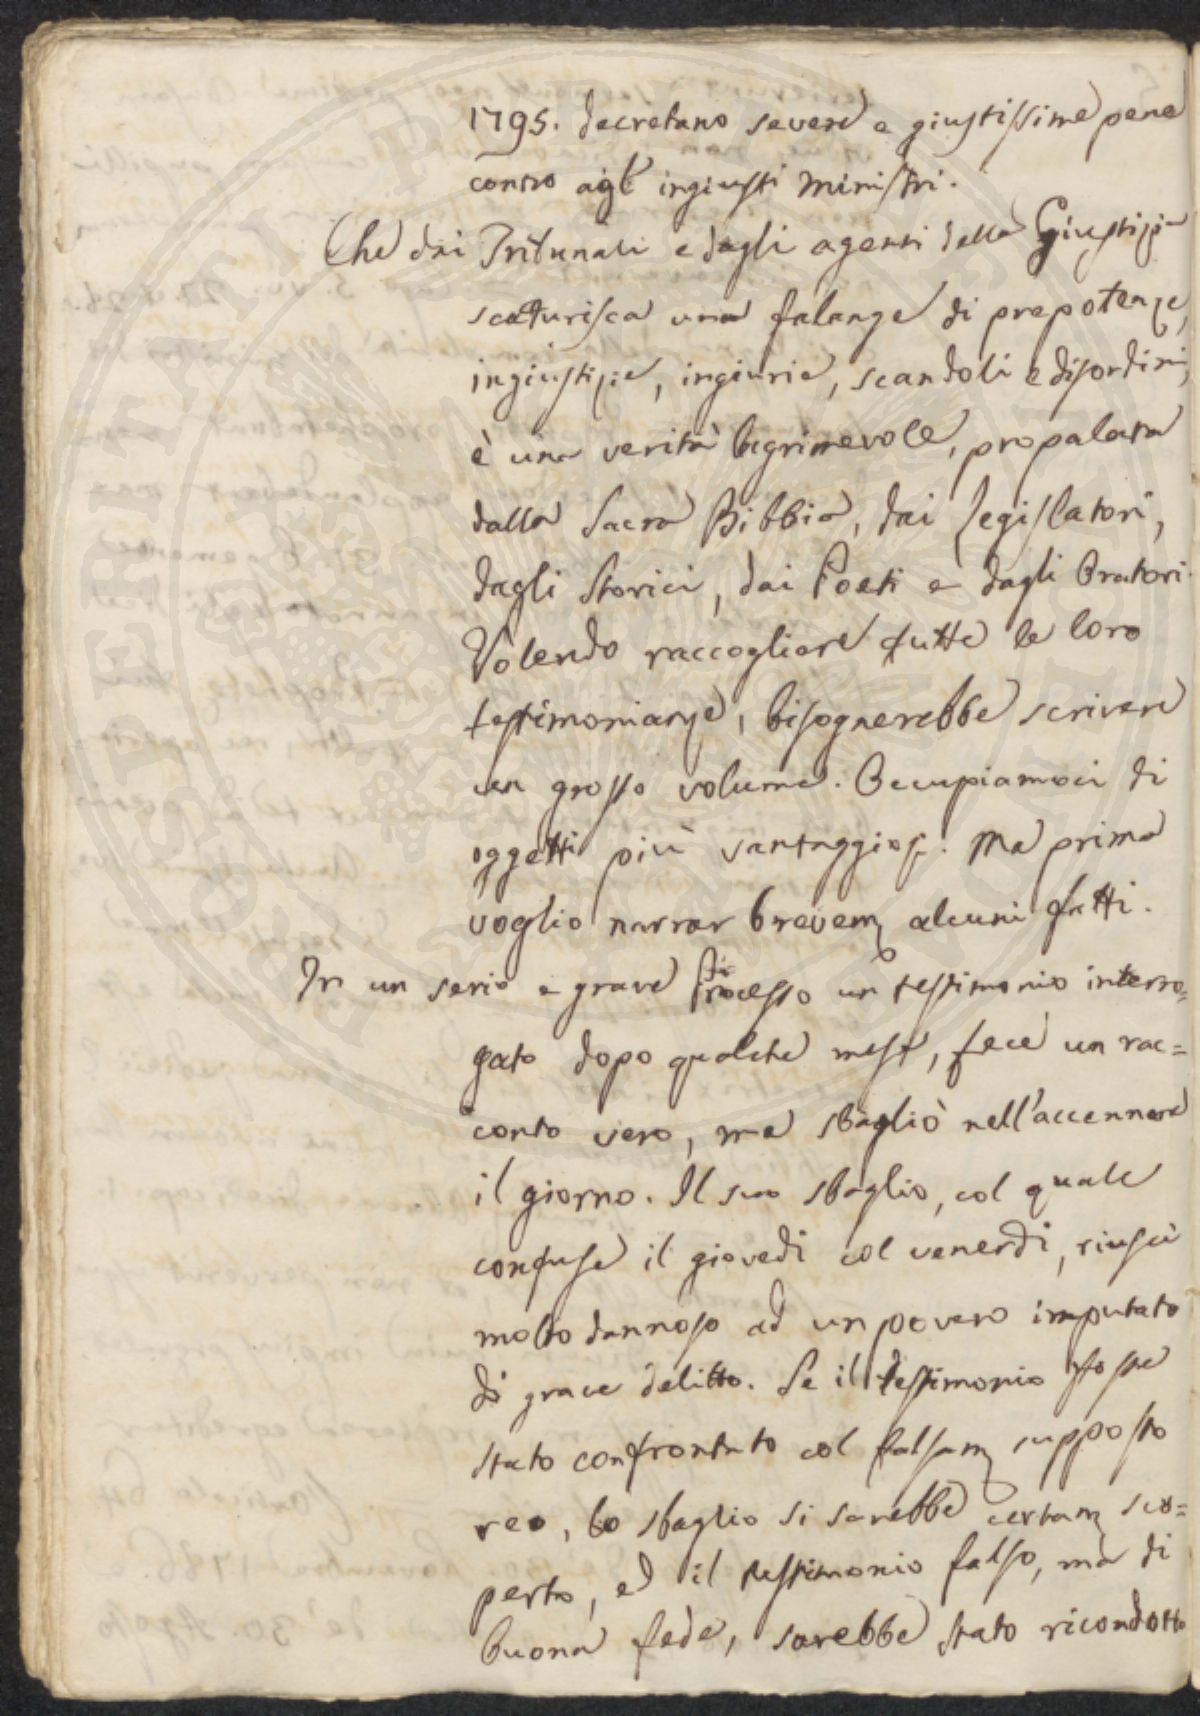 1795. decretano severe e giustissime pene
contro agl' ingiusti Ministri.
Che dai Tribunali e dagli agenti della Giustizia
scaturisca una falange di prepotenze,
ingiustizie, ingiurie, scandoli e disordini,
è una verità lagrimevole, propalata
dalla Sacra Bibbia, dai Legislatori,
dagli Storici, dai Poeti e dagli Oratori.
Volendo raccogliere tutte le loro
testimonianze, bisognerebbe scrivere
un grosso volume. Occupiamoci di
oggetti più vantaggiosi. Ma prima
voglio narrar brevem alcuni fatti.
In un serio e grave Processo un testimonio interro=
gato dopo qualche mese, fece un rac=
conto vero, ma sbagliò nell'accennare
il giorno. Il suo sbaglio, col quale
confuse il giovedì col venerdì, riuscì
molto dannoso ad un povero imputato
di grave delitto. Se il testimonio fosse
stato confrontato col falsam supposto
reo, lo sbaglio si sarebbe certam sco=
perto, ed il testimonio falso, ma di
buona fede, sarebbe stato ricondotto
PROSPERITATI PUBLICAE